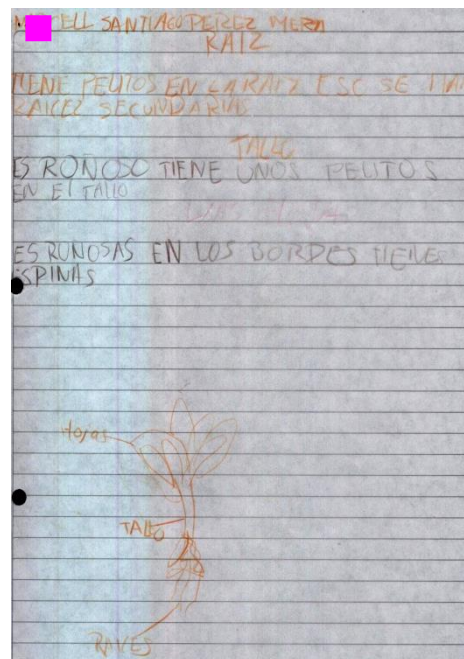 SANTIAGO PEREZ MERA
RAIZ
TIENE PELITOS EN LA RAIZ ESO SE
RAICEZ SECUNDARIAS
TALLO
ES ROÑOSO TIENE UNOS PELITOS
EN El TALLO
ES RUNOSAS EN LOS BORDES TIENES
ESPINAS
Hojas
TALLO